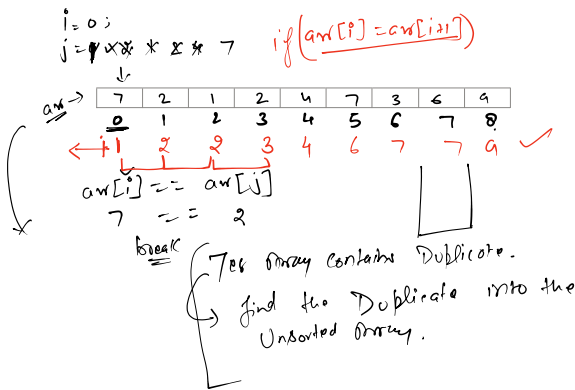 i = 0;
j = 7
if (arr[i] = arr[i+1])
arr → 7 2 1 2 4 7 3 6 9
0 1 2 3 4 5 6 7 8
1 2 2 3 4 6 7 7 9
arr[i] == arr[j]
7 == 2
break
Yes Array contains Duplicate.
→ find the Duplicate into the
Unsorted Array.